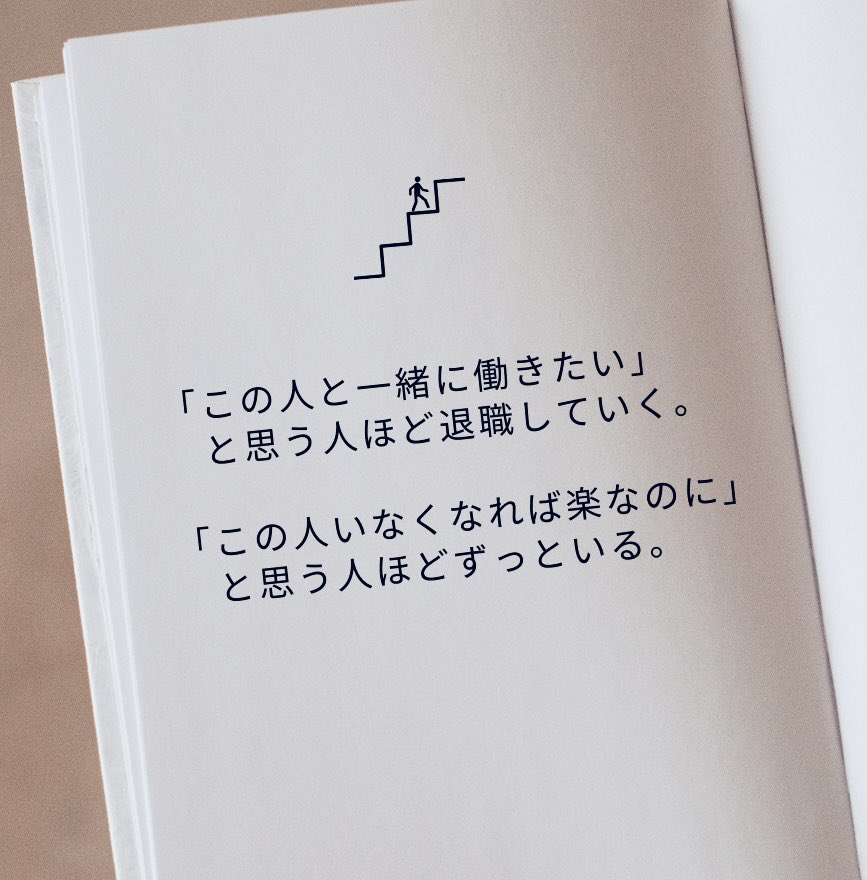 「この人と一緒に働きたい」
と思う人ほど退職していく。
「この人いなくなれば楽なのに」
と思う人ほどずっといる。